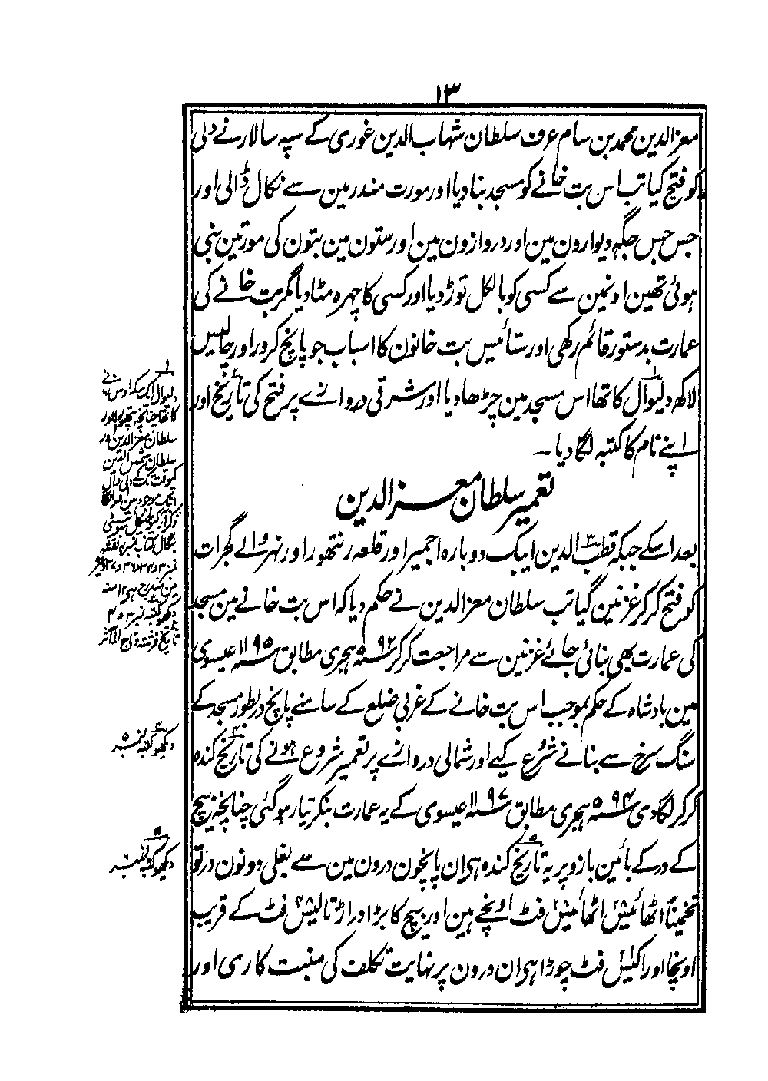 ۱۳
معزالدین محمد بن سام عرف سلطان شہاب الدین غوری کے سپہ سالار نے دلی
کو فتح کیا تب اس بت خانے کو مسجد بنا دیا اور مورت مندر مین سے نکال ڈالی اور
جس جس جگہ دیوارون مین اور دروازون مین اور ستون مین بتون کی مورتین بنی
ہوئی تھین اونین سے کسی کو بالکل توڑ دیا اور کسی کا چہرہ مٹا دیا مگر بت خانے کی
عمارت بدستور قائم رکھی اور ستائیس بت خانون کا اسباب جو پانچ کرور اور چالیس
لاکھ دلیوال کا تھا اس مسجد مین چڑھا دیا اور شرقی دروازے پر فتح کی تاریخ اور
اپنے نام کا کتبہ لگا دیا۔
تعمیر سلطان معزالدین
بعد اسکے جبکہ قطب الدین ایبک دوبارہ اجمیر اور قلعہ رنتھور اور نہروالے گجرات
کو فتح کر کر غزنین گیا تب سلطان معزالدین نے حکم دیا کہ اس بت خانے مین مسجد
کی عمارت بھی بنائی جائے غزنین سے مراجعت کر کر سنہ ۵۹۲ ہجری مطابق سنہ ۱۱۹۵ عیسوی
مین بادشاہ کے حکم بموجب اس بت خانے کے غربی ضلع کے سامنے پانچ در بطور مسجد کے
سنگ سرخ سے بنانے شروع کیے اور شمالی دروازے پر تعمیر شروع ہونے کی تاریخ کندہ
کر کر لگا دی سنہ ۵۹۴ ہجری مطابق سنہ ۱۱۹۷ عیسوی کے یہ عمارت بنکر تیار ہو گئی چنانچہ بیچ
کے در کے بائین بازو پر یہ تاریخ کندہ ہے ان پانچون درون مین سے بغلی دونون در تو
تخمیناً اٹھائیس اٹھائیس فٹ اونچے ہین اور بیچ کا بڑا در اڑتالیس فٹ کے قریب
اونچا اور اکیس فٹ چوڑا ہے ان درون پر نہایت تکلف کی منبت کاری اور
سلطان معزالدین
سلطان شمس الدین
دیکھو کتبہ نمبر ۴
دیکھو کتبہ نمبر ۵
دیکھو کتبہ نمبر